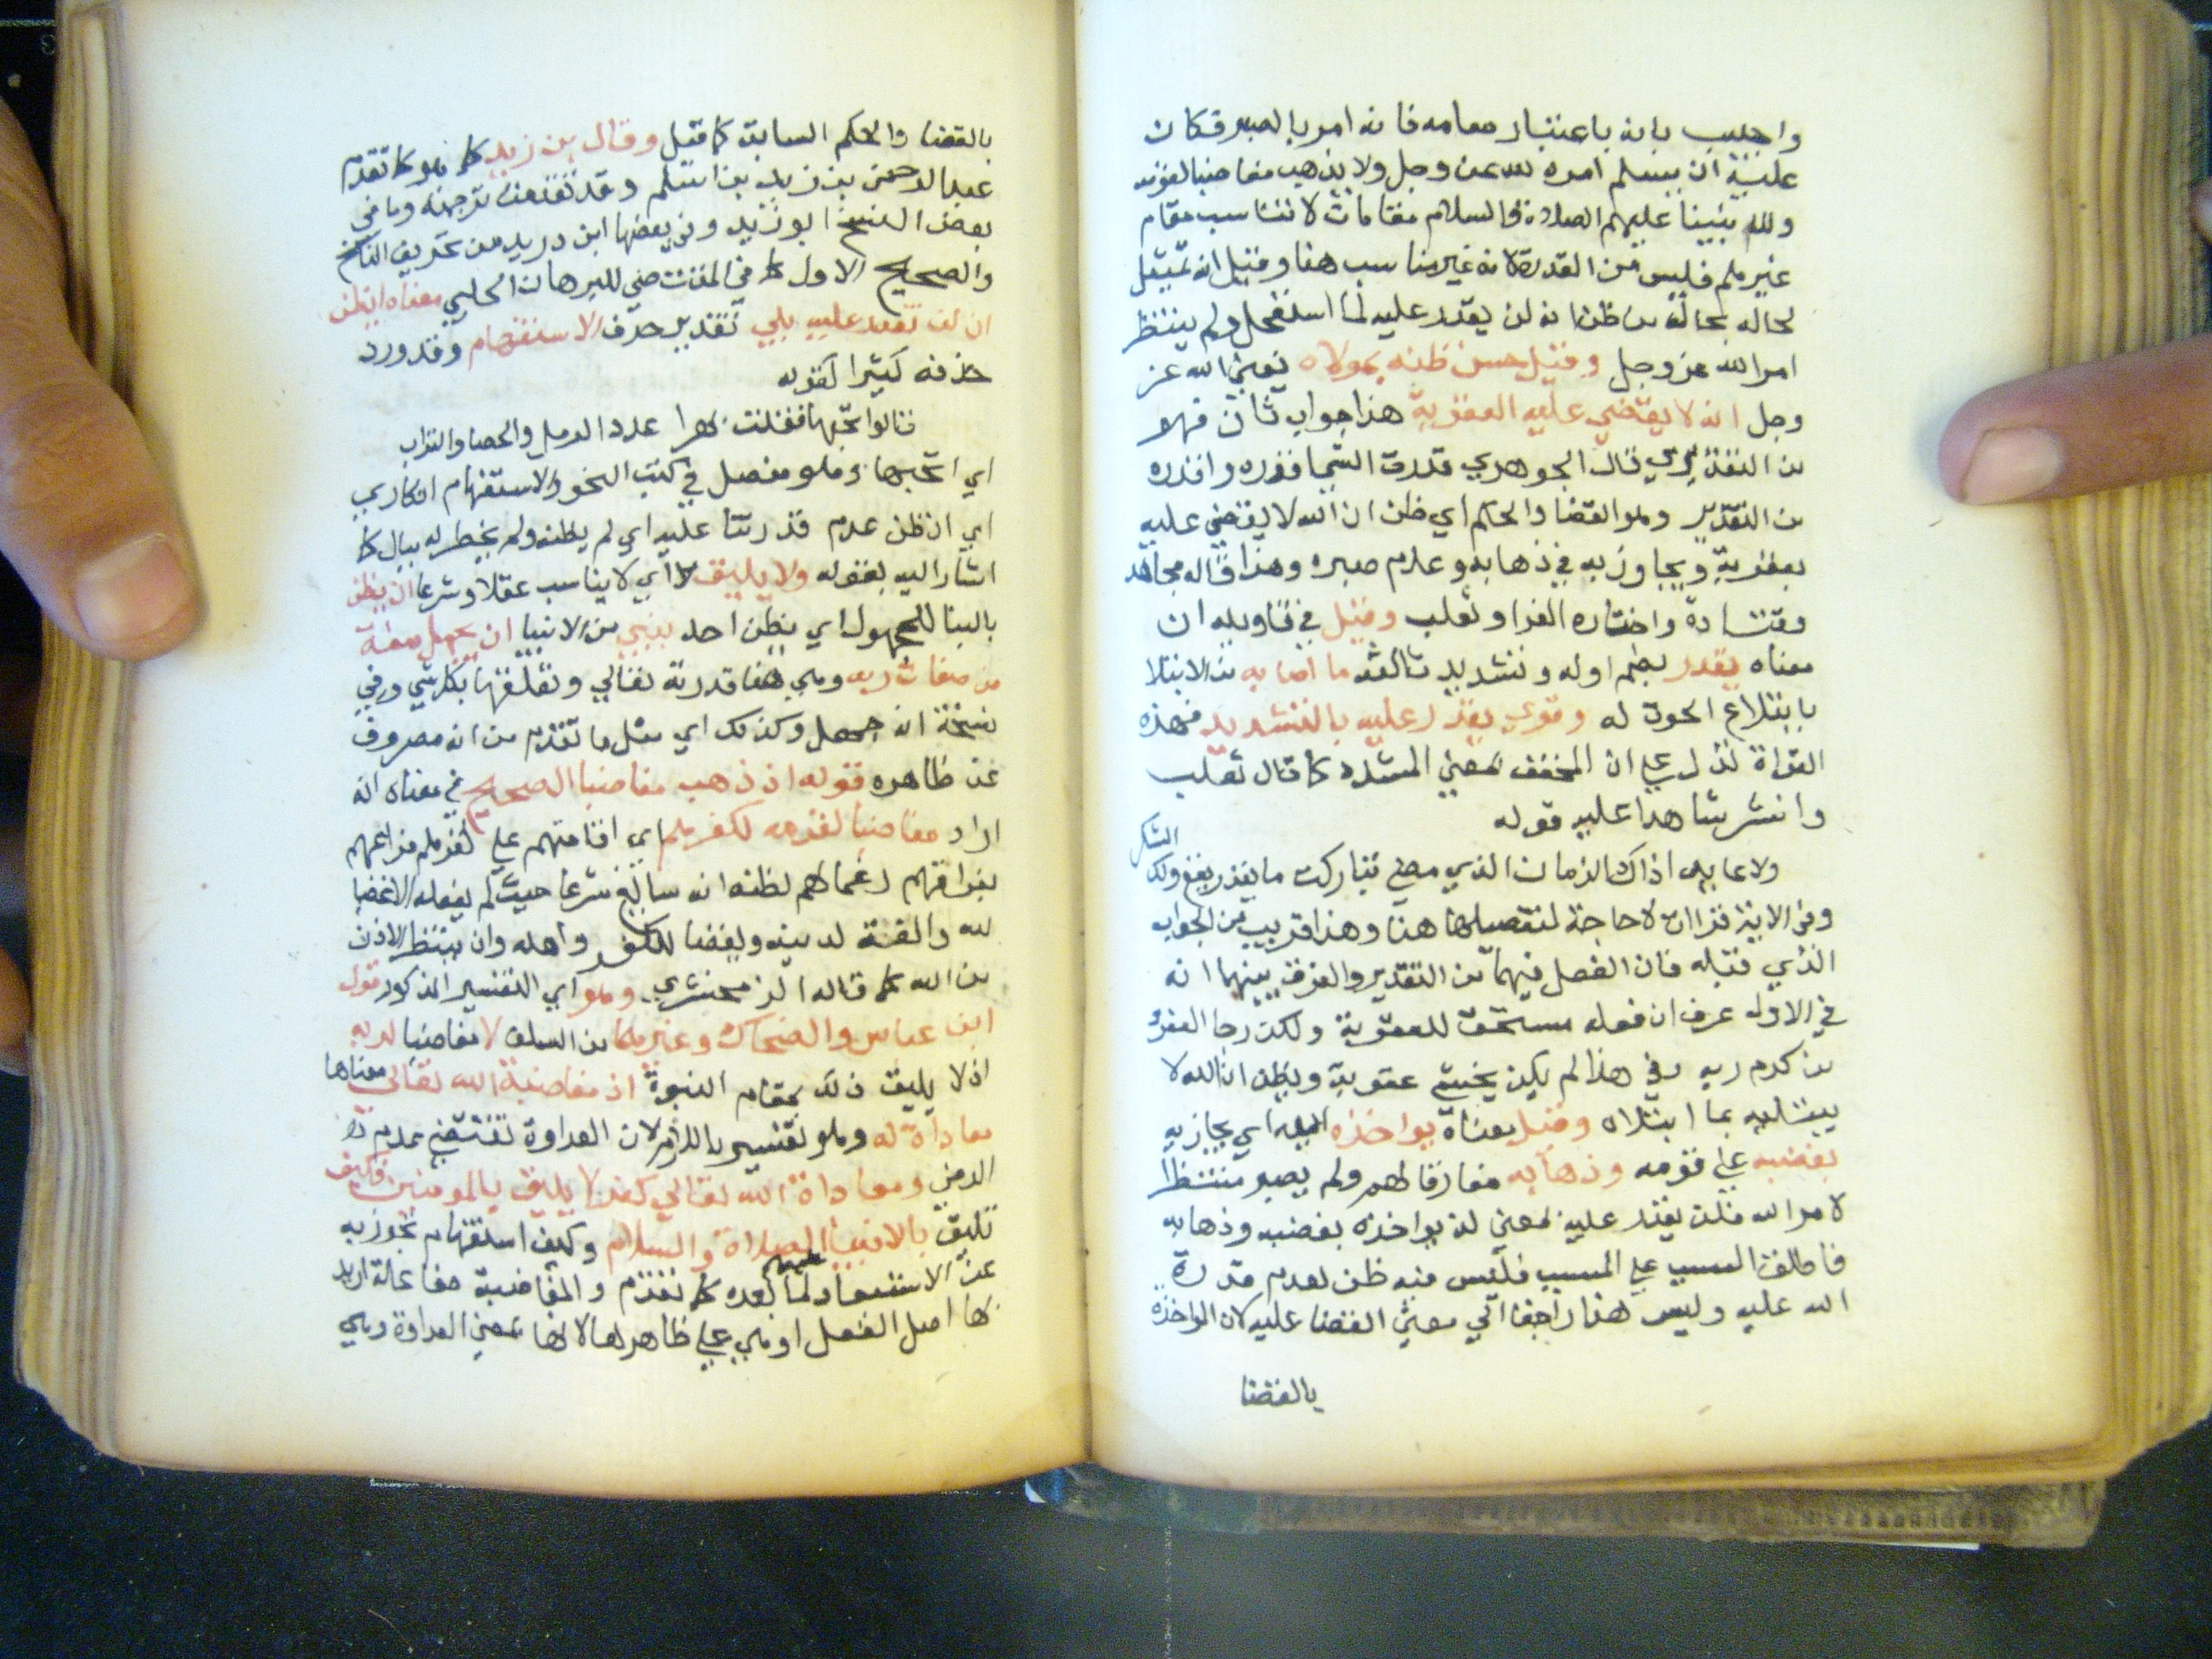 واجيب بانه باعتبار مقامه فانه امر بالصبر فكان
عليه ان يسلم امره لله عز وجل ولا يذهب مغاضبا لقومه
ولله بنبينا عليهم الصلاة والسلام مقامات لا تناسب مقام
غيرهم فليس من القدرة لانه غير مناسب هنا وقيل انه تمثيل
لحاله بحالة من ظن انه لن يقدر عليه لما استعجل ولم ينتظر
امر الله عز وجل وقيل حسن ظنه بمولاه يعني الله عز
وجل انه لا يقضي عليه العقوبة هذا جواب ثان فهو
من التقدير قال الجوهري قدرت الشي اقدره واقدره
من التقدير وهو القضا والحكم اي ظن ان الله لا يقضي عليه
بعقوبة ويجاوز به في ذهابه وعدم صبره وهذا قاله مجاهد
وقتادة واختاره الفرا وثعلب وقيل في تاويله ان
معناه يقدر بضم اوله وتشديد ثالثه ما اصابه من الابتلا
بابتلاع الحوت له وقري يقدر عليه بالتشديد فهذه
القراة تدل علي ان المخفف بمعني المشدد كما قال ثعلب
وانشد شاهدا عليه قوله
ولا عايد ذاك الزمان الذي مضي تباركت ما يقدر يقع ولك الشكر
وفي الاية قراات لا حاجة لتفصيلها هنا وهذا قريب من الجواب
الذي قبله فان الفصل فيهما من التقدير والفرق بينهما انه
في الاول عرف ان فعله مستحق للعقوبة ولكن رجا العفو
من كرم ربه وفي هذا لم يكن يخشي عقوبة ويظن ان الله لا
يبتليه بما ابتلاه وقيل معناه يواخذه الله اي يجازيه
بغضبه علي قومه وذهابه مفارقا لهم ولم يصبر منتظرا
لامر الله فلن يقدر عليه بمعني لن يواخذه بغضبه وذهابه
فاطلق السبب علي المسبب فليس فيه ظن لعدم قدرة
الله عليه وليس هذا راجعا الي معني القضا عليه لان المواخذة
بالقضا
بالقضا والحكم السابق كما قيل وقال بن زيد كما هو كما تقدم
عبد الرحمن بن زيد بن اسلم وقد تقدمت ترجمته وما في
بعض النسخ ابو زيد وفي بعضها ابن دريد من تحريف الناسخ
والصحيح الاول كما في المقتضي للبرهان الحلبي معناه ايظن
ان لن نقدر عليه بلي تقدير حرف الاستفهام وقد ورد
حذفه كثيرا كقوله
قالوا تحبها فقلت بهرا عدد الرمل والحصا والتراب
اي اتحبها وهو مفصل في كتب النحو والاستفهام انكاري
اي ان ظن عدم قدرتنا عليه اي لم يظنه ولم يخطر له ببال كما
اشار اليه بقوله ولا يليق اي لا يناسب عقلا وشرعا ان يظن
بالبنا للمجهول اي يظن احد بنبي من الانبيا ان يجهل صفة
من صفات ربه وهي هنا قدرته تعالي وتعلقها بكل شي وفي
نسخة انه جهل وكذلك اي مثل ما تقدم من انه مصروف
عن ظاهره قوله اذ ذهب مغاضبا الصحيح في معناه انه
اراد مغاضبا لقومه لكفرهم اي اقامتهم علي كفرهم فراغمهم
بفراقهم رغما لهم لظنه انه سايغ شرعا حيث لم يفعله الا غضبا
لله والفة لدينه وبغضا للكفر واهله وان ينتظر الاذن
من الله كما قاله الزمخشري وهو اي التفسير المذكور قول
ابن عباس والضحاك وغيرهما من السلف لا مغاضبا لربه
اذ لا يليق ذلك بمقام النبوة اذ مغاضبة الله تعالي معناها
معاداة له وهو تفسير باللازم لان العداوة تقتضي عدم
الرضي ومعاداة الله تعالي كفر لا يليق بالمومنين فكيف
تليق بالانبيا عليهم الصلاة والسلام وكيف استفهام تجوز به
عن الاستبعاد لما بعده كما تقدم والمغاضبة مفاعلة اريد
بها اصل الفعل او هي علي ظاهرها لانها بمعني العداوة وهي